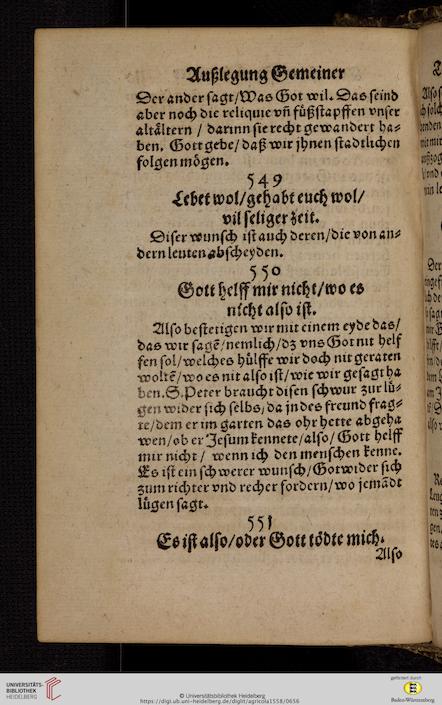 Außlegung Gemeiner
Der ander sagt/Was Got wil. Das seind
aber noch die reliquie vñ fůßstapffen vnser
altältern / darinn sie recht gewandert ha-
ben. Gott gebe/ daß wir jhnen stadtlichen
folgen mögen.
549
Lebet wol/gehabt euch wol/
vil seliger zeit.
Diser wunsch ist auch deren/die von an-
dern leuten abscheyden.
550
Gott helff mir nicht/wo es
nicht also ist.
Also bestetigen wir mit einem eyde das/
das wir sagẽ/nemlich/dz vns Got nit helf
fen sol/welches hülffe wir doch nit geraten
woltẽ/wo es nit also ist/wie wir gesagt ha
ben. S. Peter braucht disen schwur zur lü-
gen wider sich selbs/da jn des freund frag-
te/dem er im garten das ohr hette abgeha
wen/ob er Jesum kennete/also/ Gott helff
mir nicht / wenn ich den menschen kenne.
Es ist ein schwerer wunsch/Got wider sich
zum richter vnd recher fordern/wo jemãdt
lügen sagt.
551
Es ist also/oder Gott tödte mich.
Also
UNIVERSITÄTS-
BIBLIOTHEK
HEIDELBERG
© Universitätsbibliothek Heidelberg
https://digi.ub.uni-heidelberg.de/diglit/agricola1558/0656
gefördert durch
Baden-Württemberg